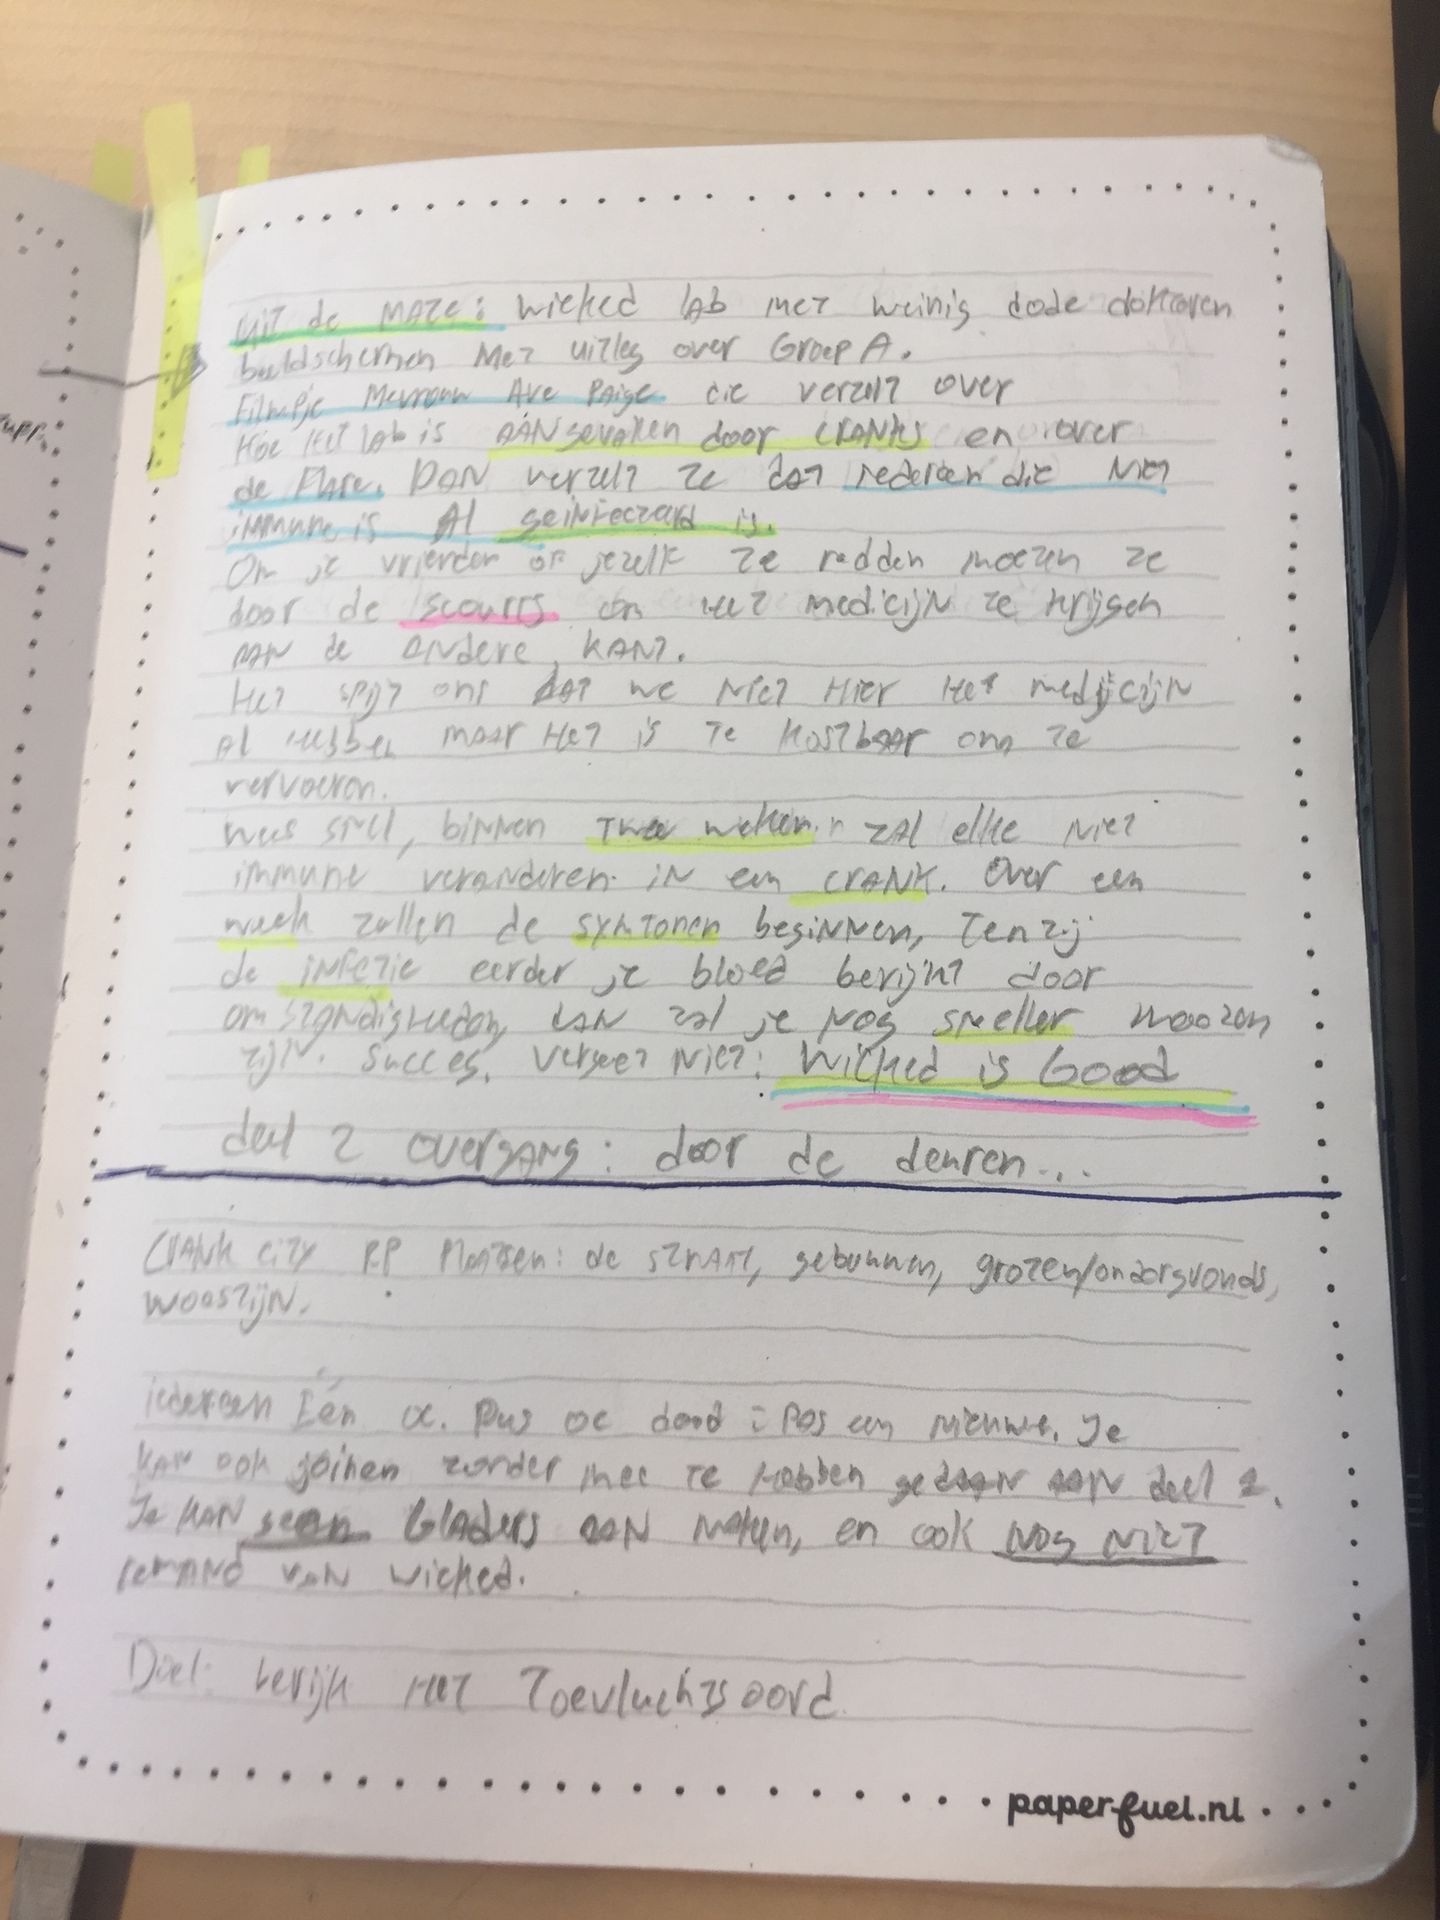 Uit de Maze: Wicked lab met weinig dode doktoren
beeldschermen met uitleg over Groep A.
Filmpje Mevrouw Ave Paige die verzelt over
Hoe het lab is aangevallen door cranks en over
de Flare. Dan verzelt ze dat iedereen die niet
immune is al geinfecteerd is.
Om je vrienden of jezelf te redden moeten ze
door de scourts om het medicijn te krijgen
aan de andere kant.
Het spijt ons dat we niet hier het medijcijn
al hebben maar het is te kostbaar om te
vervoeren.
Wees snel, binnen twee weken zal elke niet
immune veranderen in een crank. Over een
week zullen de symtonen beginnen, tenzij
de infectie eerder je bloed berijkt door
omstandigheden, dan zal je nog sneller moeten
zijn. Succes. Vergeet niet: Wicked is Good
deel 2 overgang: door de deuren...
Crank city RP Plaatsen: de straat, gebouwen, groten/ondergronds,
woestijn.
iedereen Één oc. Dus oc dood = pas een nieuwe. Je
kan ook joinen zonder mee te hebben gedaan aan deel 1.
Je kan geen Gladers aan maken, en ook nog niet
iemand van wicked.
Doel: berijk het Toevluchtsoord
paperfuel.nl